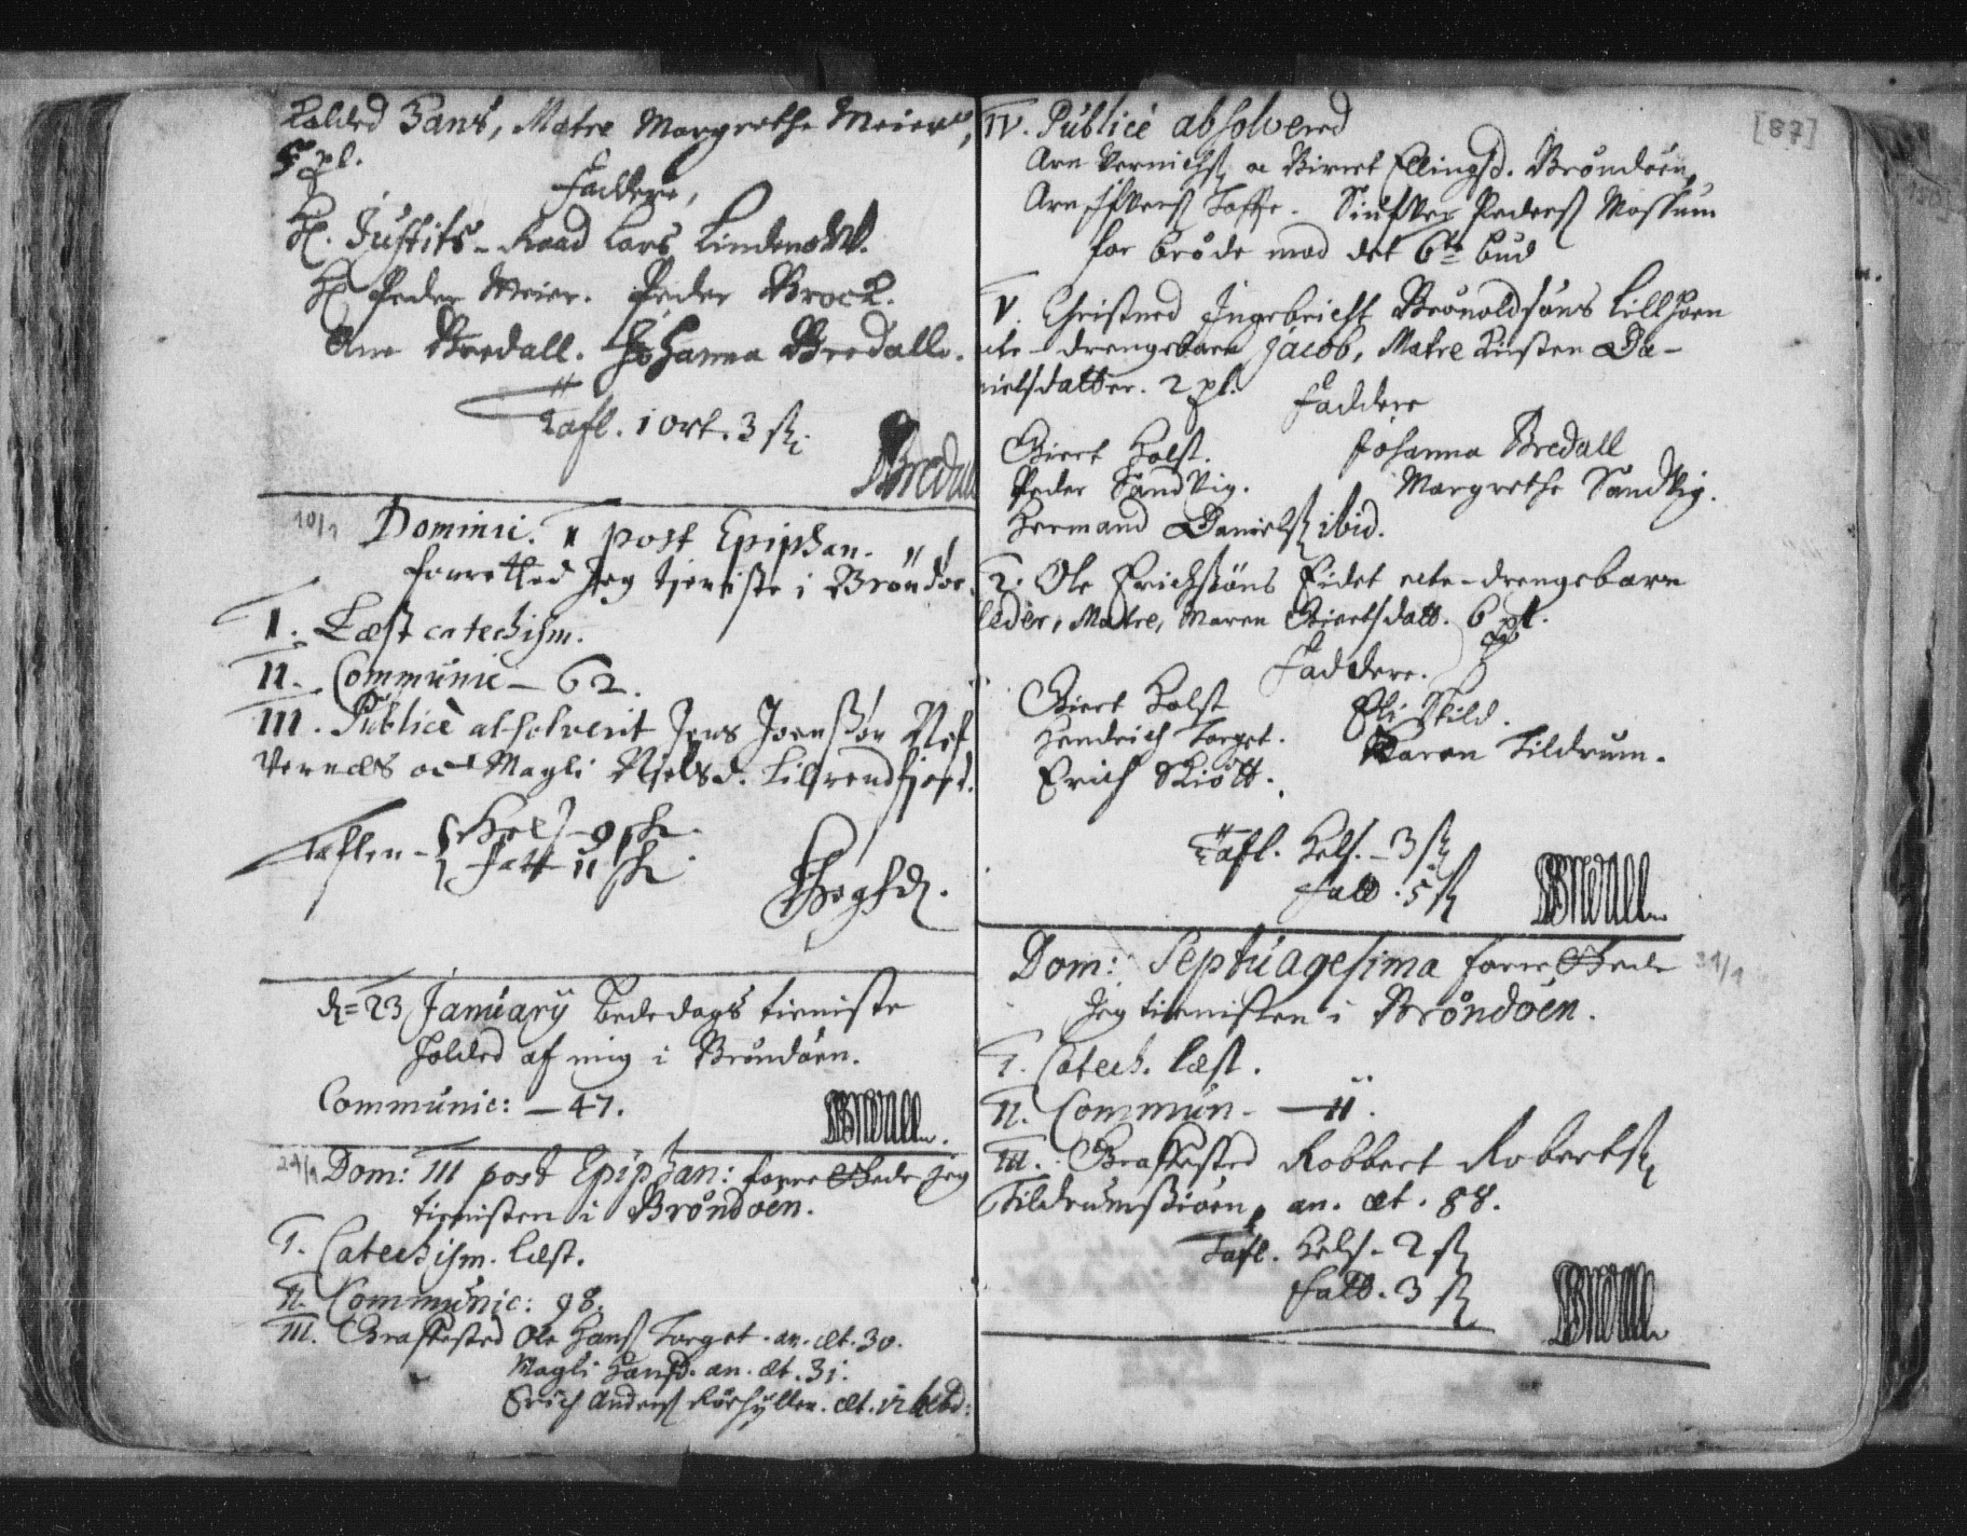 kalded Hans, Matre Margrethe Meiers,
5 pl.
Faddere,
H. Justits-Raad Lars Lindenow.
H Peder Meier. Peder Brock.
Ane Bredall. Johanna Bredalls.
Tafl. 1 ort. 3 sk.
Bredal
10/1
Dominic. II post Epiphan.
forretted Jeg tieniste i Brøndøe.
I. Læst catechism.
II. Communic - 62.
III. Publicè absolverit Jens Joenssøn
Vernæs och Magli Nielsd.
Taflen - Hels - 9 sk.
Fatt 11 sk.
d= 23 January bededags tieniste
holded af mig i Brøndøen.
Communic: - 47.
Bredall.
24/1
Dom: III post Epiphan: forrettede jeg
tienisten i Brøndøen.
I. Catechism. læst.
II. Communic: 98.
III. Graffæsted Ole Hanss Torget. an. æt. 30.
Magli Hansd. an. æt. 31.
Erich Anderss æt. 12
[87]
IV. Publicè absolvered
Arn oc Birret Ellingsd. Brøndøen,
Arn Ifverss Toffte. Siufver Pederss Mossum
for brøde mod det 6te bud
V. Christned Ingebricht Brønoldsøns
ecte-drengebarn Jacob, Matre Kirsten Da-
nielsdatter. 2 pl.
Faddere
Giert Holst.
Johanna Bredall
Peder Sandvig.
Margrethe Sandvig.
Hermand Danielss ibid.
2. Ole Erichssøns Eidet ecte-drengebarn
Peder, Matre, Maren Giertsdatt. 6 pl.
Faddere.
Giert Holst
Eli Skild.
Hendrich Torget.
Karen Tildrum.
Erich Skiøtt.
Tafl. Hels. - 3 sk
Fatt. 5 sk
Bredall
Dom: Septuagesima forrettede
31/1
Jeg tienisten i Brøndøen.
I. Catech. læst.
II. Commun - 11.
III. Graffæsted Robbert Robertss
Tildrumssiøen, an. æt. 88.
Tafl. Hels. 2 sk
Fatt. 3 sk
Bredall